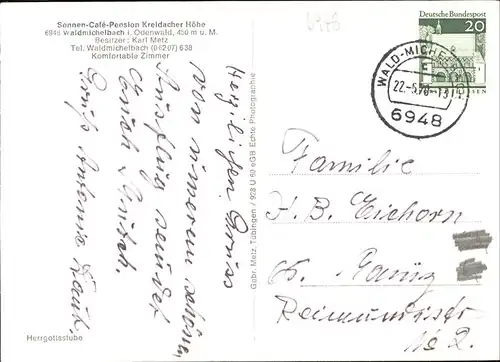 Sonnen-Café-Pension Kreidacher Höhe
6948 Waldmichelbach i. Odenwald, 450 m ü. M.
Besitzer: Karl Metz
Tel. Waldmichelbach (06207) 638
Komfortable Zimmer
Herzlichen Gruss
von unserem schönen
Ausflug sendet
Euch
Gruß
Herrgottsstube
Gebr. Metz, Tübingen / 928 U 60 eGB Echte Photographie
Deutsche Bundespost
20
WALD-MICHEL
6948
Familie
H. B. Eichorn
Reimundistr.
No 2.